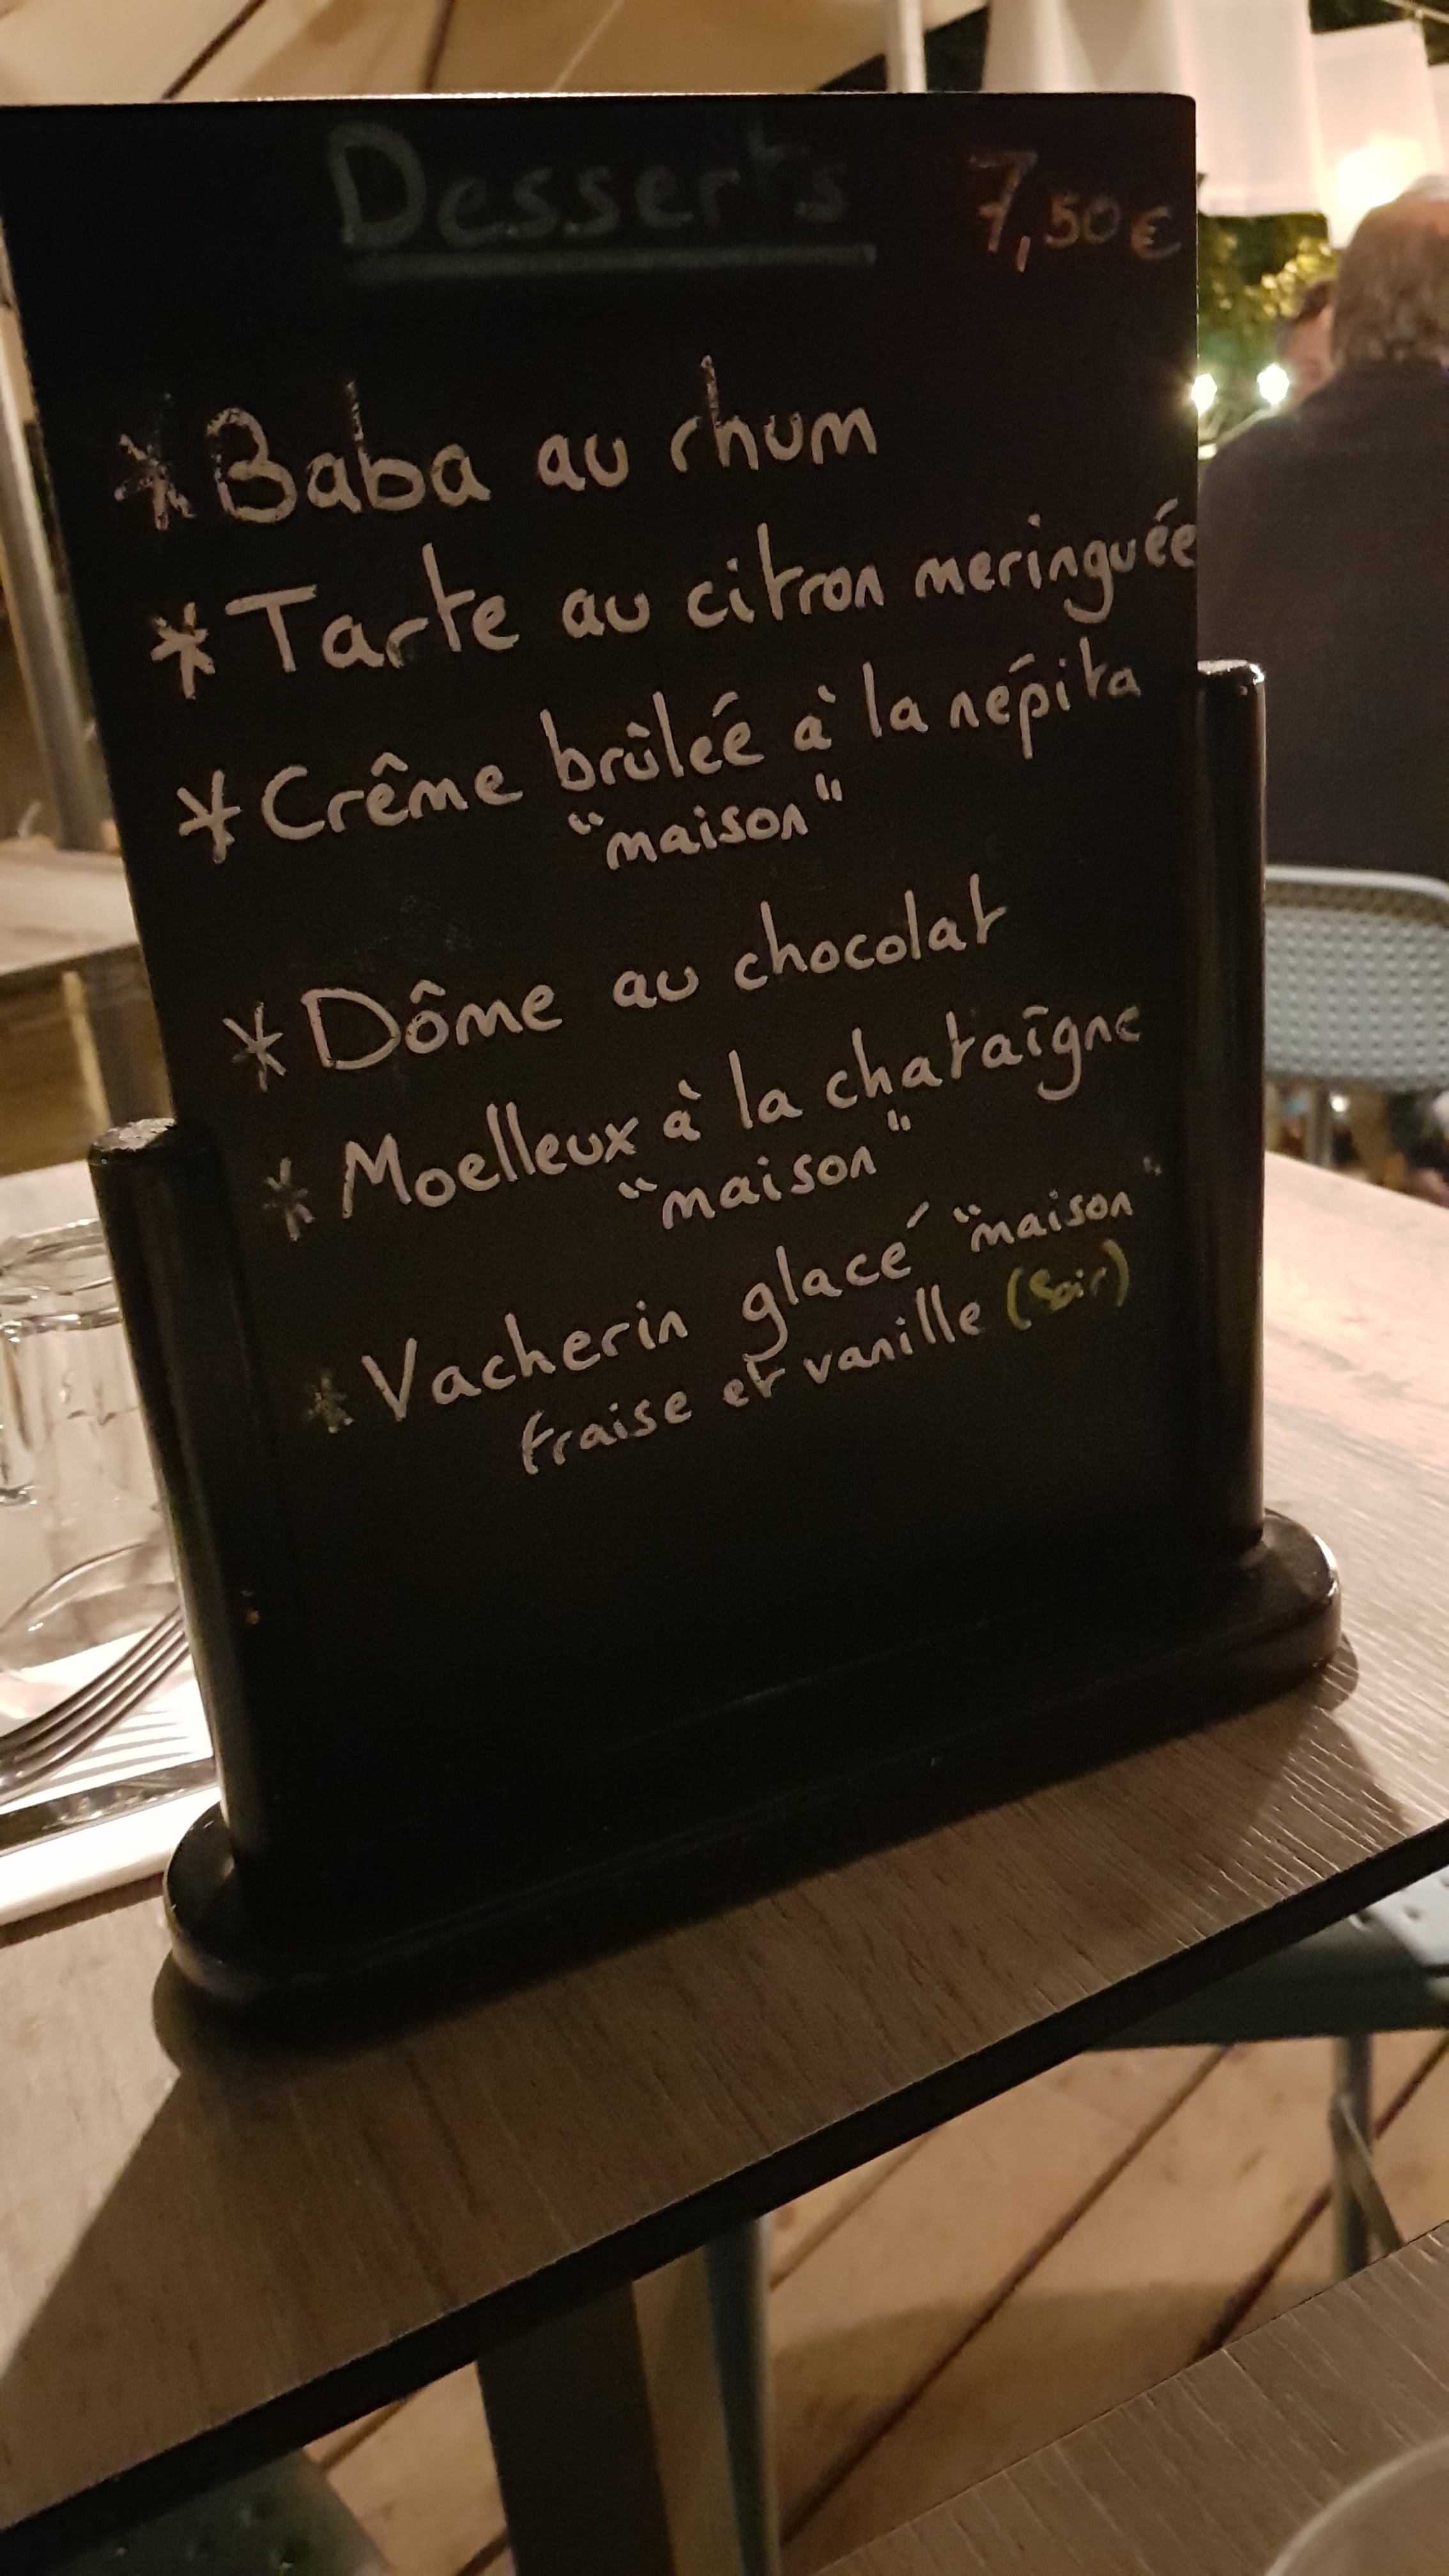 Desserts 7,50€
* Baba au rhum
* Tarte au citron meringuée
* Crême brûleé à la népita
"maison"
* Dôme au chocolat
* Moelleux à la chataîgne
"maison"
* Vacherin glacé "maison"
fraise et vanille (Soir)